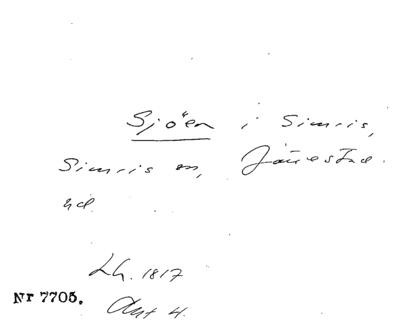 Sjöen i Simris,
Simris sn, Järrestad
hd
Lh. 1817
Nr 7705.
Akt 4.